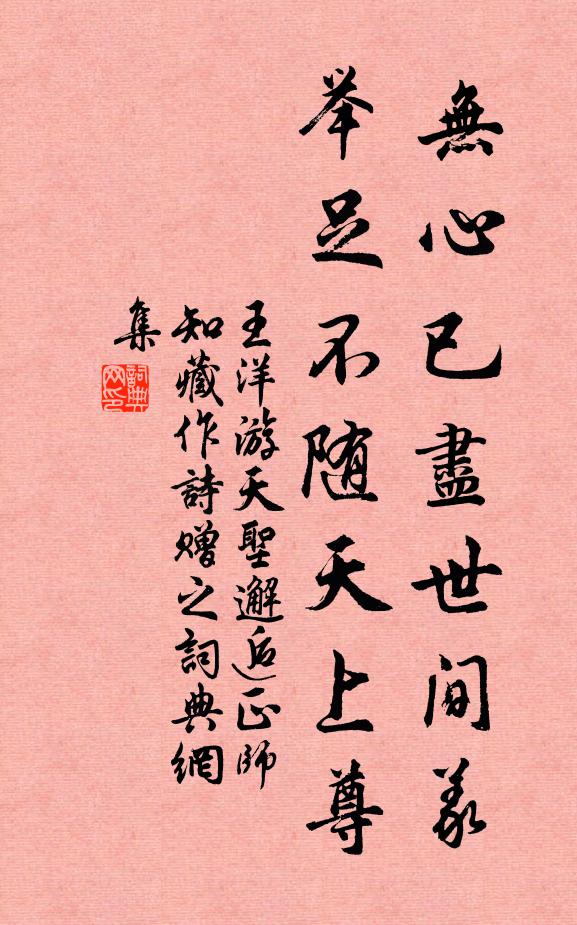 無心已盡世間義
举足不随天上尊
王洋游天聖邂逅正師
知藏作詩贈之詞典網
集
詞典
网印